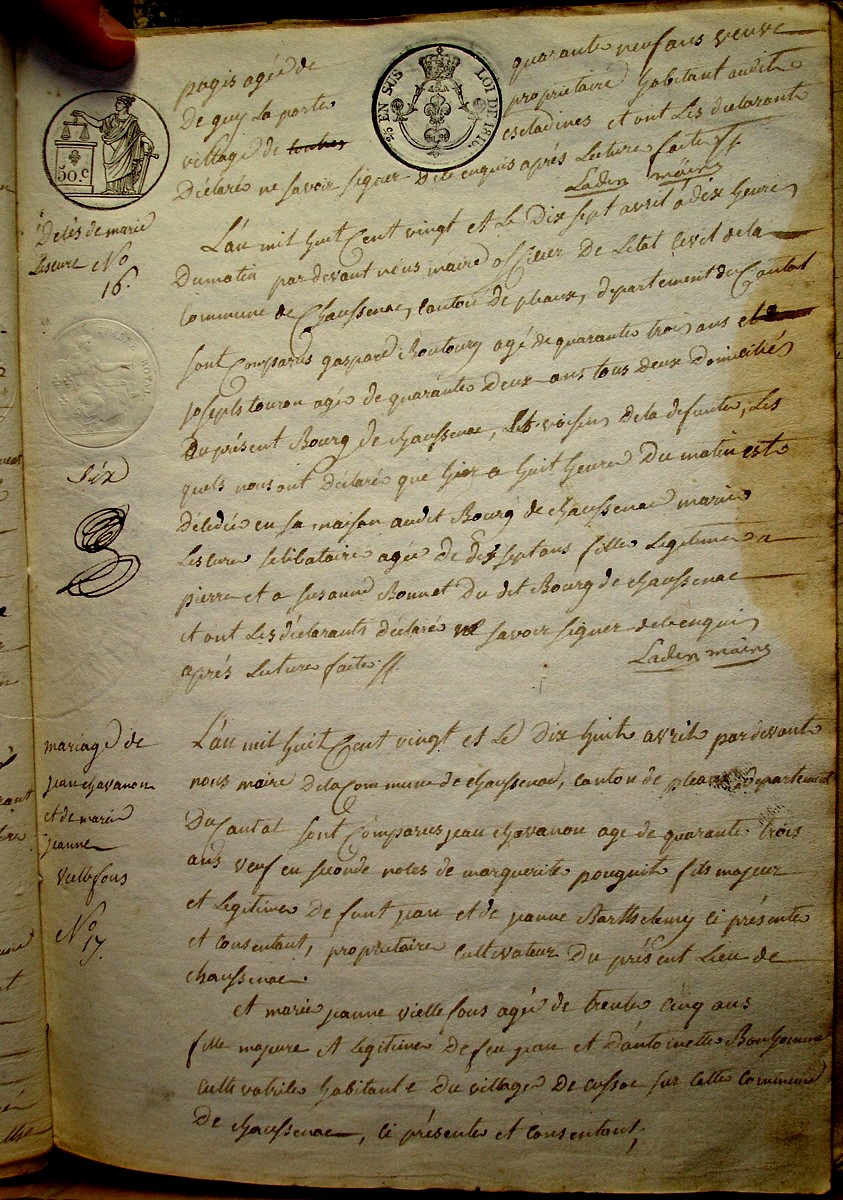 pagis agée de quarante neuf ans veuve
De guy Laporte propriétaire habitant audit
village de escladines et ont Les déclarants
Déclaré ne savoir signer De ce enquis après Lecture faite
Laden mains
50.c
25/C EN SUS LOI DE 1816.
Décès de marie
Lescure No
16.
ROYAL
Six
L'an mil huit Cent vingt et Le Dix sept avril a dix heures
Du matin par devant nous maire officier De Letat Civil de la
Commune de Chaussenac, Canton de pleaux, departement du Cantal
sont Comparus gaspard Boutoury agé de quarante trois ans et
joseph touron agé de quarante Deux ans tous deux Domiciliés
Du présent Bourg de chaussenac, voisins de la defunte, Les
quels nous ont Déclaré que hier a huit heures Du matin est
Décédée en sa maison audit Bourg de chaussenac marie
Lescure selibataire agée de dix sept ans fille Legitime a
pierre et a susanne Bonnet Du dit Bourg de chaussenac
et ont Les déclarants déclaré ne savoir signer de ce enquis
après Lecture faite
Laden mains
mariage de
jean chavanon
et de marie
jeanne
Viellefons
No
17.
L'an mil huit Cent vingt et Le Dix huit avril par devant
nous maire De la Commune de chaussenac, canton de pleaux Departement
Du Cantal sont Comparus jean chavanon age de quarante trois
ans veuf en seconde notes de marguerite pougnit fils majeur
et Legitime De funt jean et de jeanne Barthelemy ci présente
et consentant, propriétaire cultivateur Du présent Lieu de
chaussenac
et marie jeanne viellefons agée de trente cinq ans
fille majeure et Legitime De feu jean et D'antoinette Bonhomme
cultivatrice habitante du village De cussac sur cette commune
De chaussenac, ci présente et consentant,